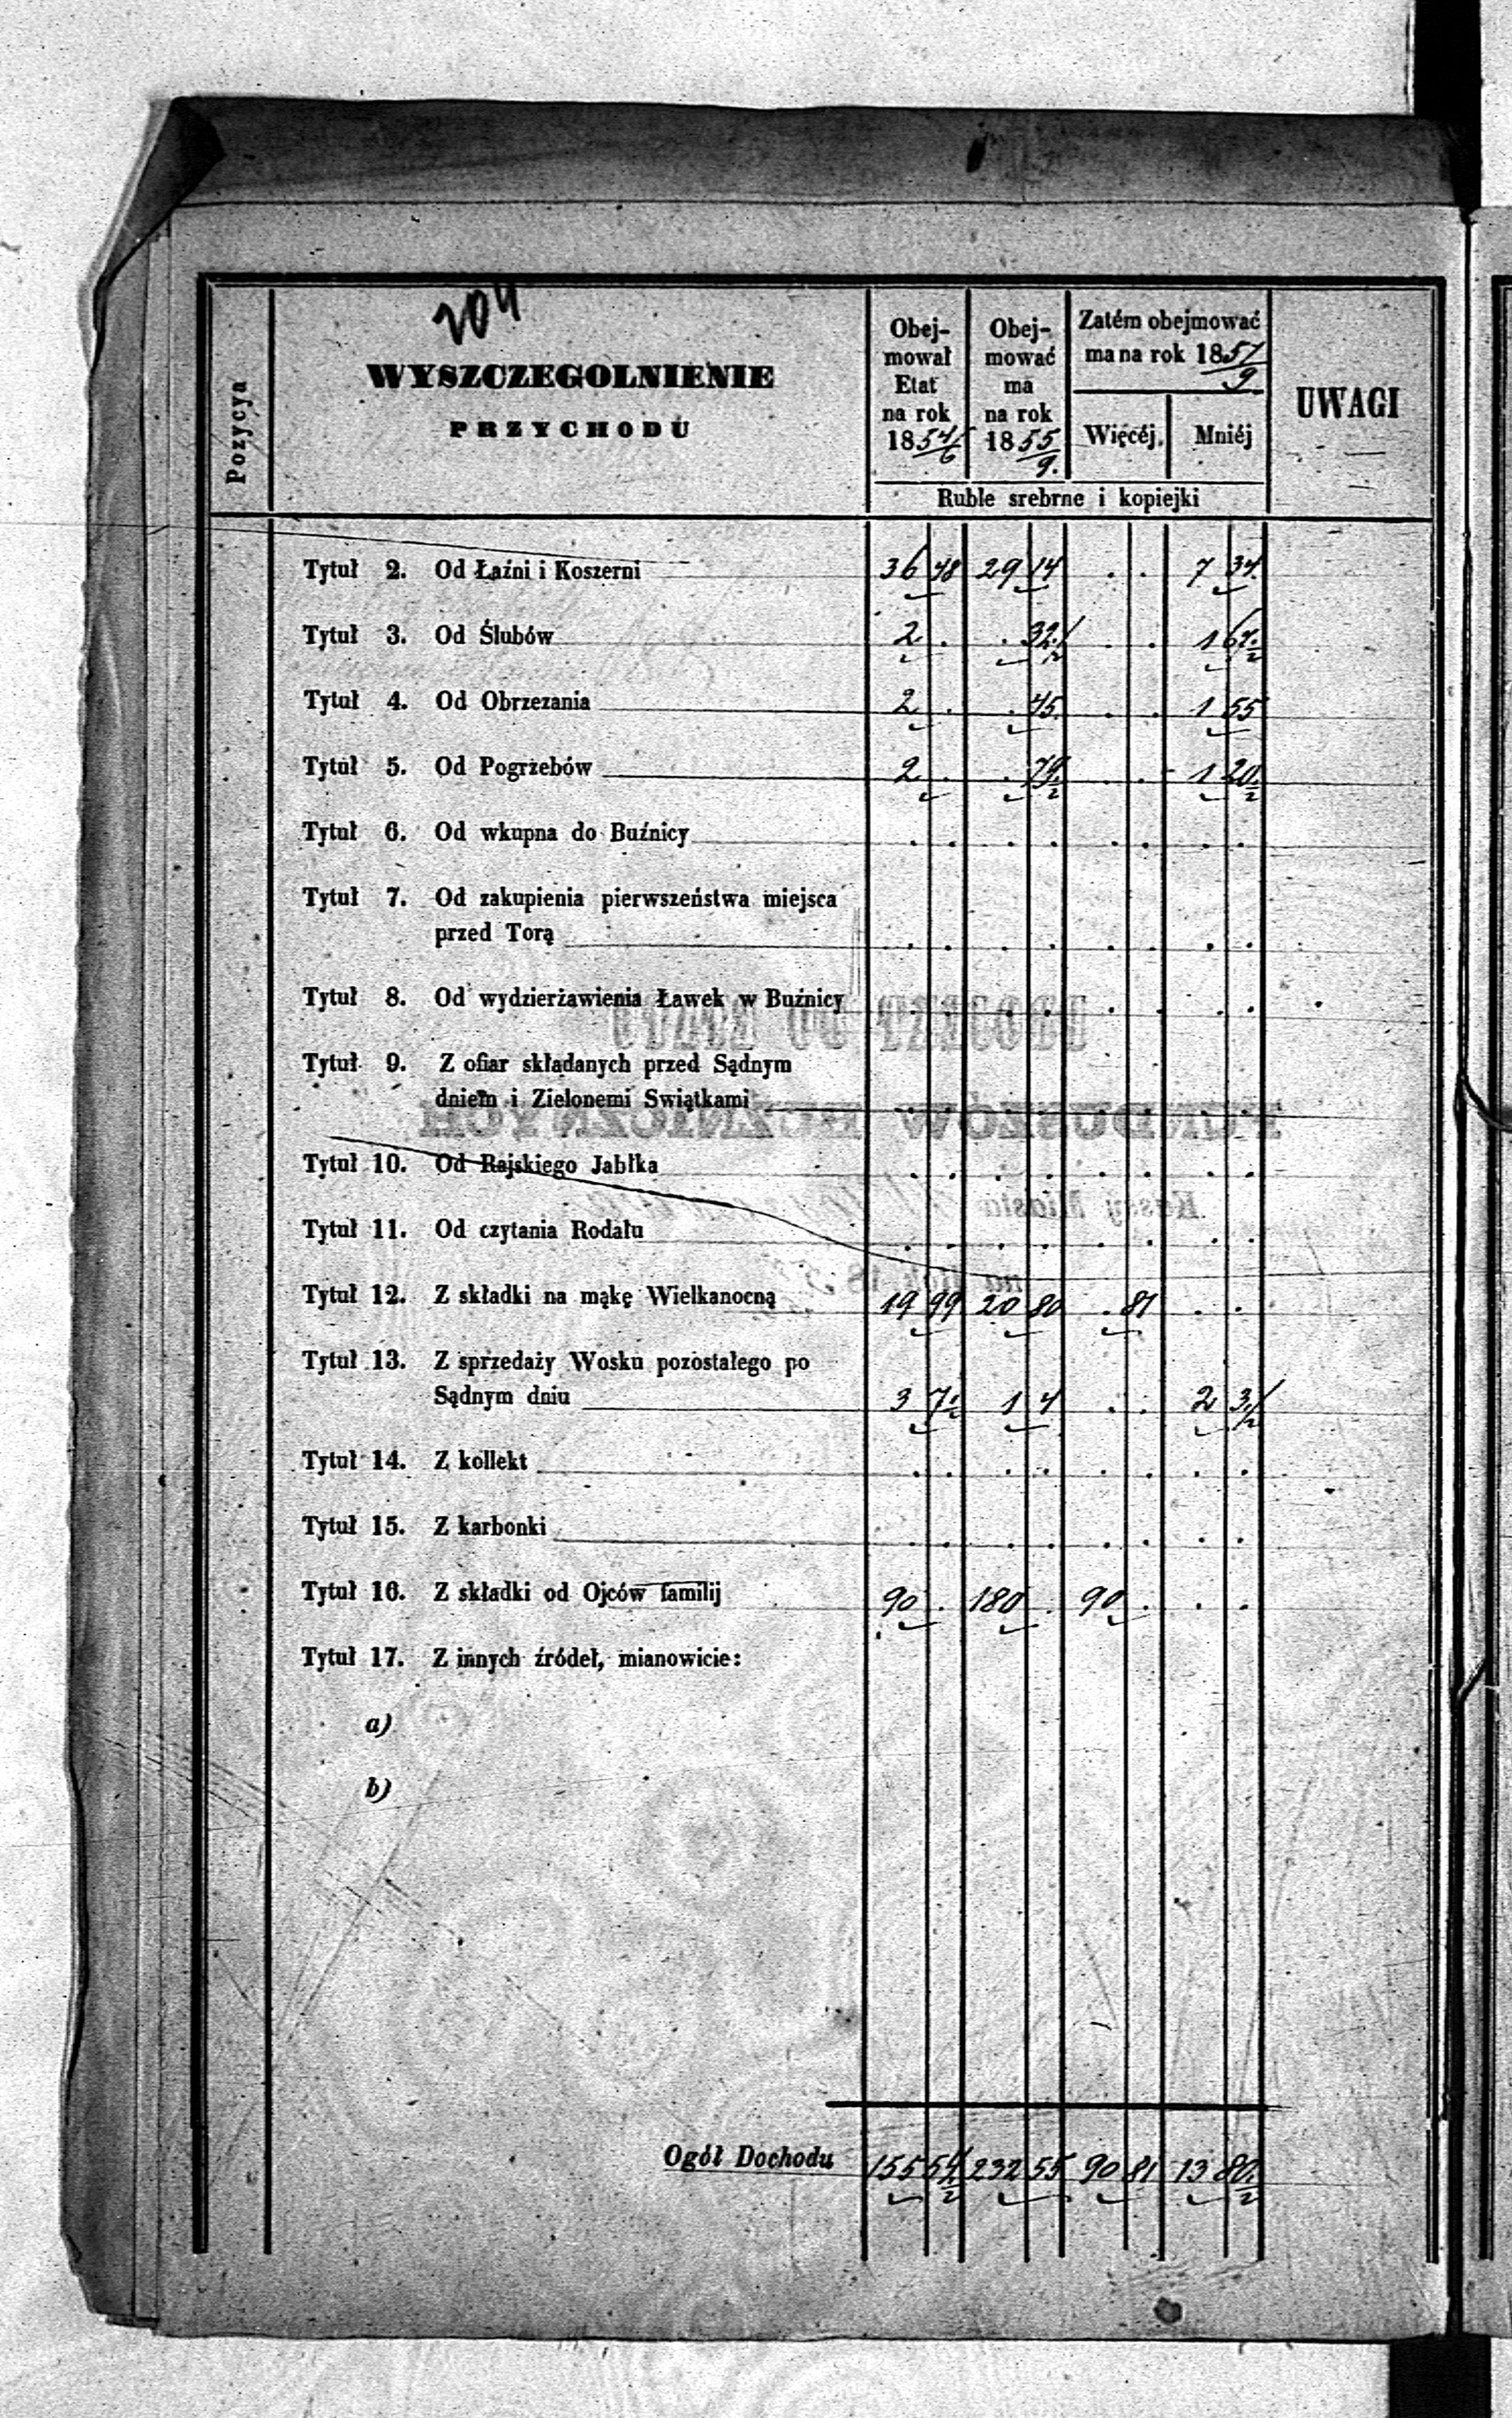 204
Pozycya
WYSZCZEGOLNIENIE
PRZYCHODU
Obej-
mował
Etat
na rok
18 54/6
Obej-
mować
ma
na rok
18 55/9.
Zatém obejmować
ma na rok 18 57/9
Więcéj. Mniéj
Ruble srebrne i kopiejki
UWAGI
Tytuł 2. Od Łaźni i Koszerni 36 48 29 14 . . 7 34.
Tytuł 3. Od Ślubów 2 . . 32 1/2 . . 1 67 1/2
Tytuł 4. Od Obrzezania 2 . . 45. . . 1 55
Tytuł 5. Od Pogrzebów 2 . . 79 1/2 . . 1 20 1/2
Tytuł 6. Od wkupna do Buźnicy . . . . . . . .
Tytuł 7. Od zakupienia pierwszeństwa miejsca
przed Torą . . . . . . . .
Tytuł 8. Od wydzierżawienia Ławek w Buźnicy . . . . . . . .
Tytuł 9. Z ofiar składanych przed Sądnym
dniem i Zielonemi Swiątkami . . . . . . . .
Tytuł 10. Od Rajskiego Jabłka . . . . . . . .
Tytuł 11. Od czytania Rodału . . . . . . . .
Tytuł 12. Z składki na mąkę Wielkanocną 19 99 20 80 . 81 . .
Tytuł 13. Z sprzedaży Wosku pozostałego po
Sądnym dniu 3 7 1/2 1 4 . . 2 3 1/2
Tytuł 14. Z kollekt . . . . . . . .
Tytuł 15. Z karbonki . . . . . . . .
Tytuł 16. Z składki od Ojców familij 90 . 180 . 90 . . .
Tytuł 17. Z innych źródeł, mianowicie:
a)
b)
Ogół Dochodu 155 54 1/2 232 55 90 81 13 80 1/2